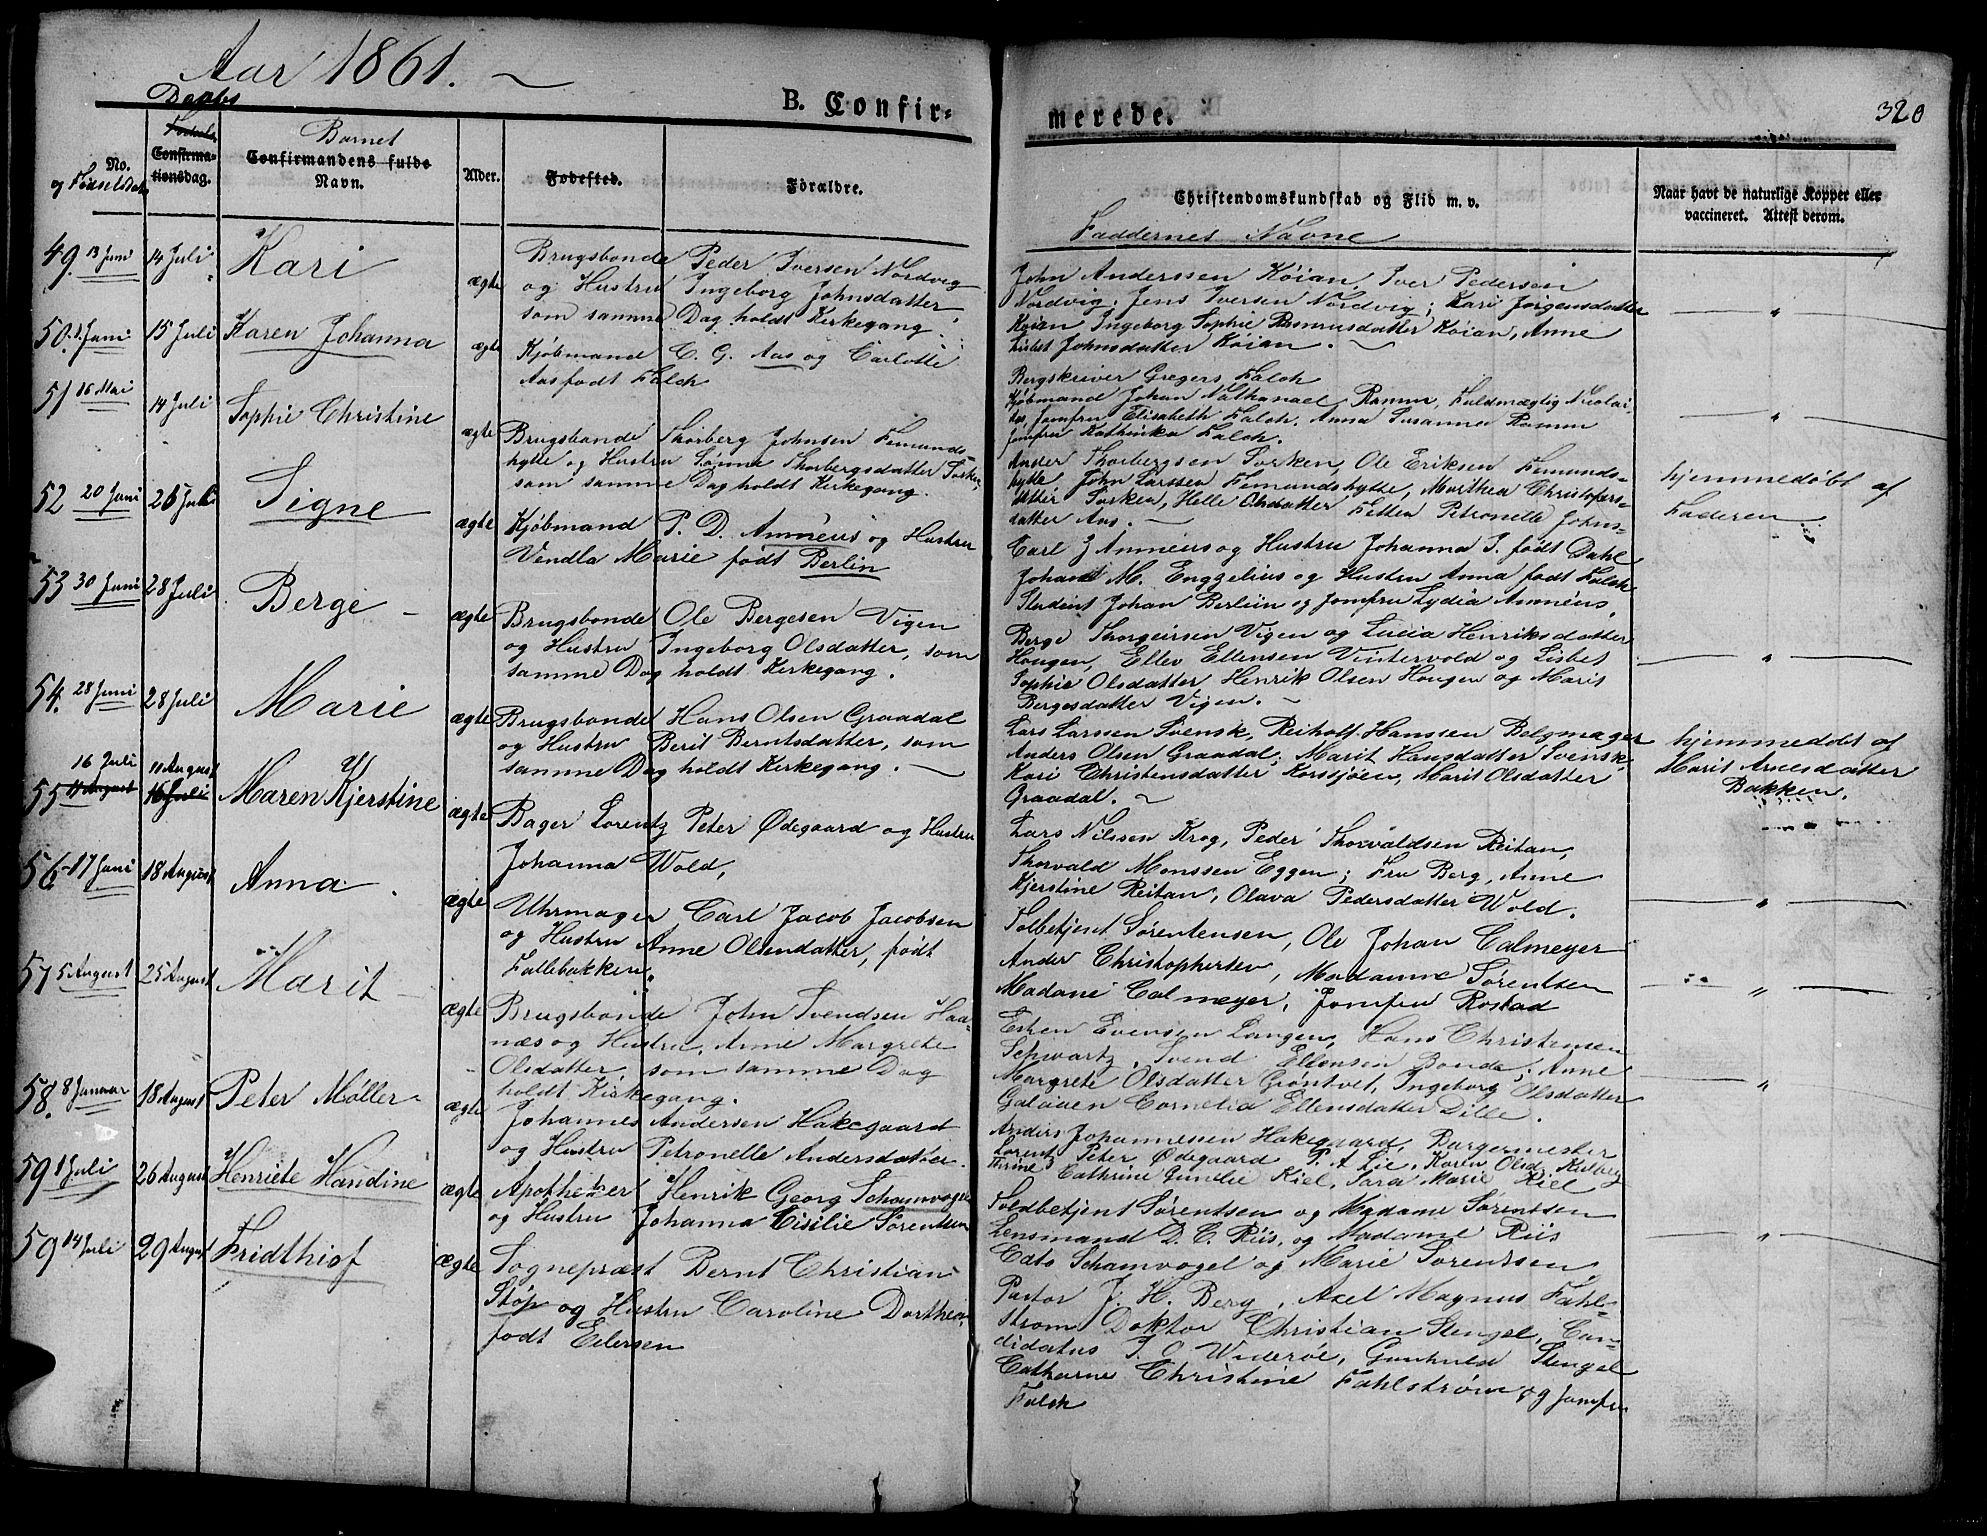 Aar 1861.
B. Confir-
merede.
320
Daabs
No.
og Fødselsdato
Confirma-
tionsdag.
Barnet
Confirmandens fulde
Navn.
Alder.
Fødested.
Forældre.
Christendomskundskab og Flid m. v.
Faddernes Navne
Naar havt de naturlige Kopper eller
vaccineret. Attest derom.
49. 13 Juni 14 Juli Kari ægte Brugsbonde Peder Iversen Nordvig
og Hustru Ingeborg Johnsdatter,
som samme Dag holdt Kirkegang.
John Anderssen Køian, Iver Pedersen
Nordvig, Jens Iversen Nordvig; Kari Jørgensdatter
Køian Ingeborg Sophie Rasmusdatter Køian, Anne
Lisbet Johnsdatter Køian.
50. 1 Juni 15 Juli Karen Johanna ægte Kjøbmand C. G. Aas og Carlotte
Aas født Falch
Bergskriver Gregers Falch
Kjøbmand Johan Nathanael Ramm, Fuldmægtig Nicolai
Aas, Jomfru Elisabeth Falch, Anna Susanna Ramm
Jomfru Kathinka Falch.
51 16 Mai 14 Juli Sophie Christine ægte Brugsbonde Thorberg Johnsen Femunds-
hytte og Hustru Sønne Thorbergsdatter Sorken,
som samme Dag holdt Kirkegang.
Ander Thorbergsen Sorken, Ole Eriksen Femunds-
hytte, John Larssen Femundshytte, Marthea Christofers-
datter Sorken, Helle Olsdatter Petronelle Johns-
datter Aas.
hjemmedøbt af
Faderen
52 20 Juni 26 Juli Signe ægte Kjøbmand P. D. Amnéus og Hustru
Vendla Marie født Berlin
Carl J Amnéus og Hustru Johanna J. født Dahl
Johan M. Enggelius og Hustru Anna født Falch
Student Johan Berliin og Jomfru Lydia Amnéus.
53 30 Juni 28 Juli Berge ægte Brugsbonde Ole Bergesen Vigen
og Hustru Ingeborg Olsdatter, som
samme Dag holdt Kirkegang.
Berge Thorgeirsen Vigen og Lucia Henriksdatter
Hougen, Ellev Ellensen Vintervold og Lisbet
Sophie Olsdatter Henrik Olsen Hougen og Marit
Bergesdatter Vigen.
54. 28 Juni 28 Juli Marie ægte Brugsbonde Hans Olsen Graadal
og Hustru Berit Berntsdatter, som
samme Dag holdt Kirkegang.
Lars Larssen Svensk, Reiholt Hanssen Belgmager
Anders Olsen Graadal, Marit Hansdatter Svensk,
Kari Christensdatter Korssjøen, Marit Olsdatter
Graadal.
hjemmedøbt af
Marit Arnesdatter
Bakken.
16 Juli 11 August
55 11 August 16 Juli Maren Kjerstine ægte Bager Lorentz Peter Ødegaard og Hustru
Johanna Wold,
Lars Nilssen Krog, Peder Thorvaldsen Reitan,
Thorvald Monssen Eggen; Fru Berg, Anne
Kjerstine Reitan, Olava Pedersdatter Wold.
56 17 Juni 18 August Anna ægte Uhrmager Carl Jacob Jacobsen
og Hustru Anne Olsendatter, født
Fallebakken.
Tolbetjent Sørentensen, Ole Johan Calmeyer
Ander Christophersen, Madamme Sørentsen
Madame Calmeyer, Jomfru Rostad
57 5 August 25 August Marit ægte Brugsbonde John Svendsen Haa-
næs og Hustru, Anne Margrete
Olsdatter som samme Dag
holdt Kirkegang.
Esten Evensen Langen, Hans Christensen
Schwartz, Svend Ellensen Bonde, Anne
Margrete Olsdatter Grøntvet, Ingeborg Olsdatter
Galaaen Cornelia Ellensdatter Dille.
58. 8 Januar 18 August Peter Møller ægte Johannes Andersen Hakegaard
og Hustru Petronelle Andersdatter.
Anders Johannessen Hakegaard, Borgermester
Lorentz Peter Ødegaard P. A Lie, Karen Olsd.
Cathrine Gunilie Kiel, Sara Marie Kiel
59 1 Juli 26 August Henriete Handine ægte Apotheker Henrik Georg Schamvogel
og Hustru Johanna Cisilie Sørentsen
Toldbetjent Sørentsen og Madame Sørentsen
Lensmand D. C. Riis, og Madame Riis
Cato Schamvogel og Marie Sørentsen,
59 14 Juli 29 August Fridthiof ægte Sognepræst Bernt Christian
Støp og Hustru Caroline Dorthea,
født Eilersen
Pastor J. H. Berg, Axel Magnus Fahl-
strøm Doktor Christian Stengel, Can-
didatus J. O. Widerøe, Gunhild Stengel
Catharne Christine Fahlstrøm og Jomfru
Falch